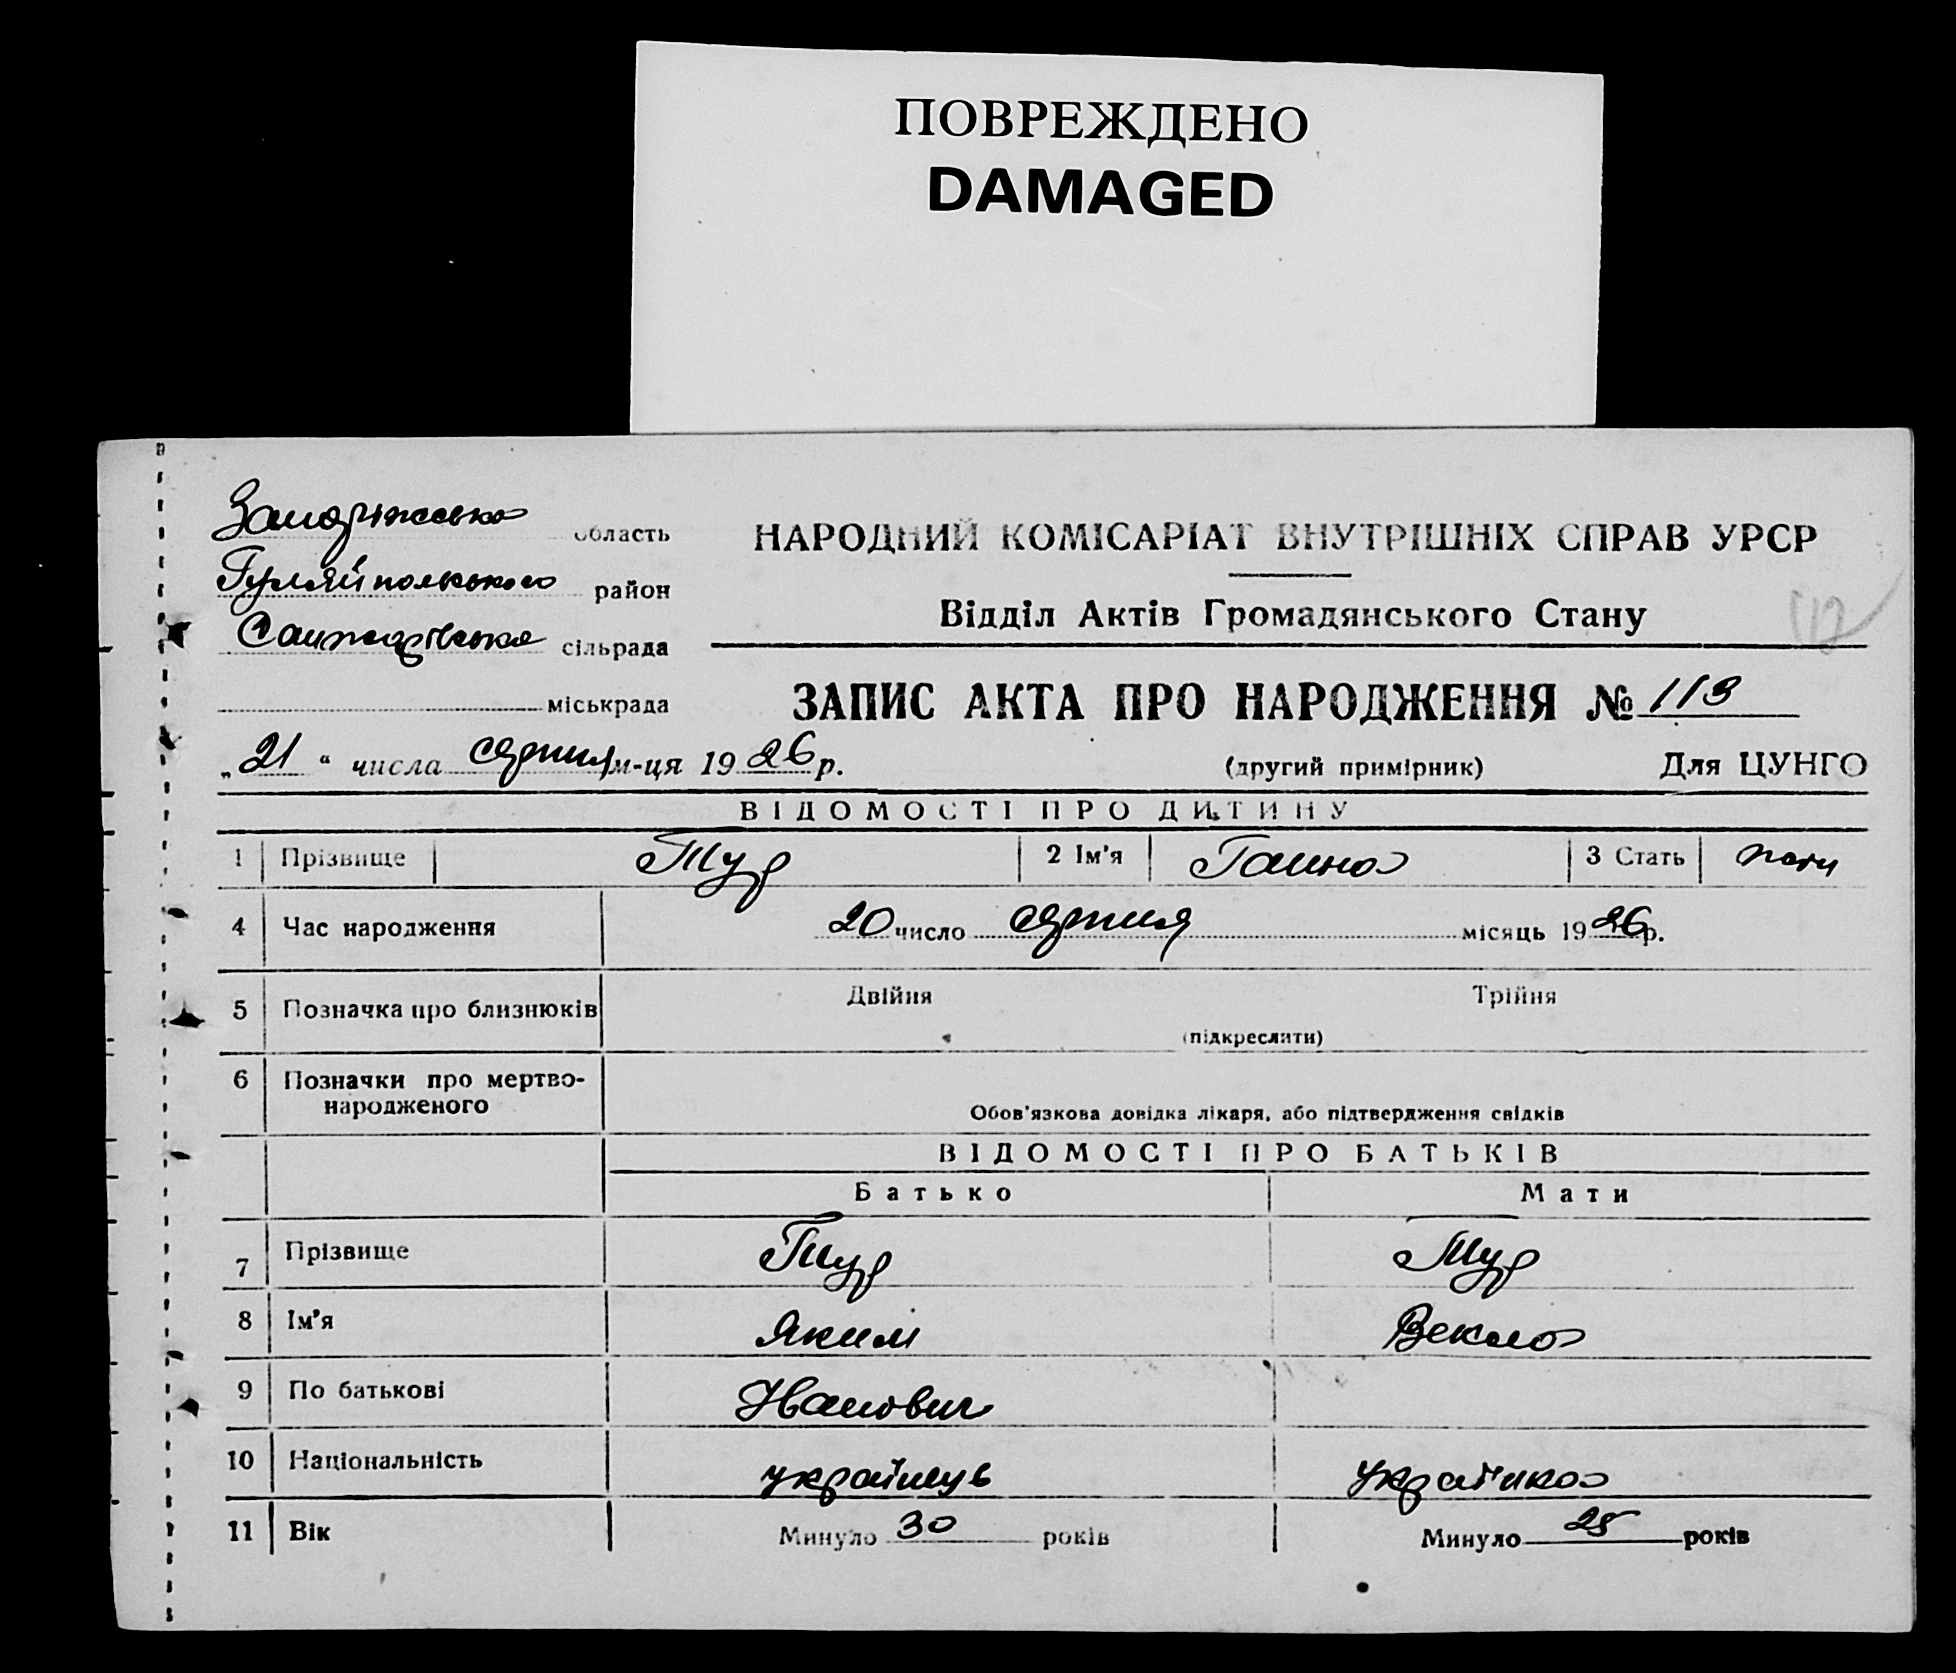 ПОВРЕЖДЕНО
DAMAGED
Запоріжська область
Гуляйпольського район
Санжарівська сільрада
міськрада
НАРОДНИЙ КОМІСАРІАТ ВНУТРІШНІХ СПРАВ УРСР
Відділ Актів Громадянського Стану
ЗАПИС АКТА ПРО НАРОДЖЕННЯ № 113
„21“ числа серпня м-ця 1926 р.
(другий примірник) Для ЦУНГО
ВІДОМОСТІ ПРО ДИТИНУ
1 Прізвище Тур 2 Ім'я Ганна 3 Стать
4 Час народження 20 число серпня місяць 1926р.
5 Позначка про близнюків Двійня Трійня
(підкреслити)
6 Позначки про мертво-
народженого
Обов'язкова довідка лікаря, або підтвердження свідків
ВІДОМОСТІ ПРО БАТЬКІВ
Батько Мати
7 Прізвище Тур Тур
8 Ім'я Яким Векла
9 По батькові Іванович
10 Національність українець українка
11 Вік Минуло 30 років Минуло 25 років